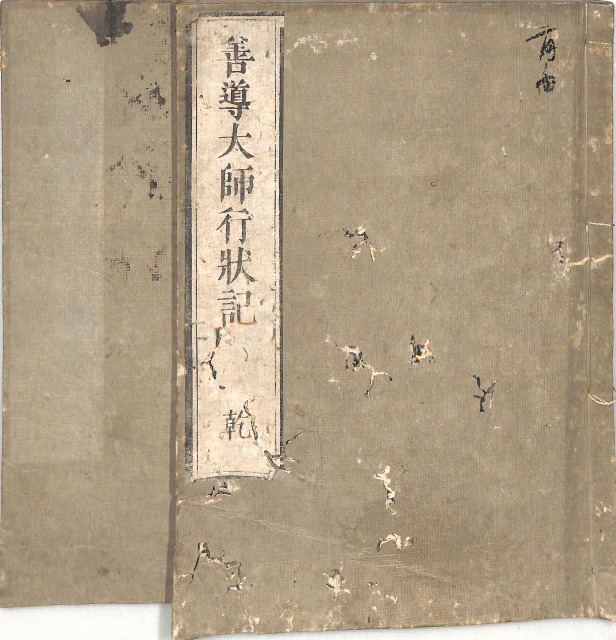 善導大師行狀記 乾